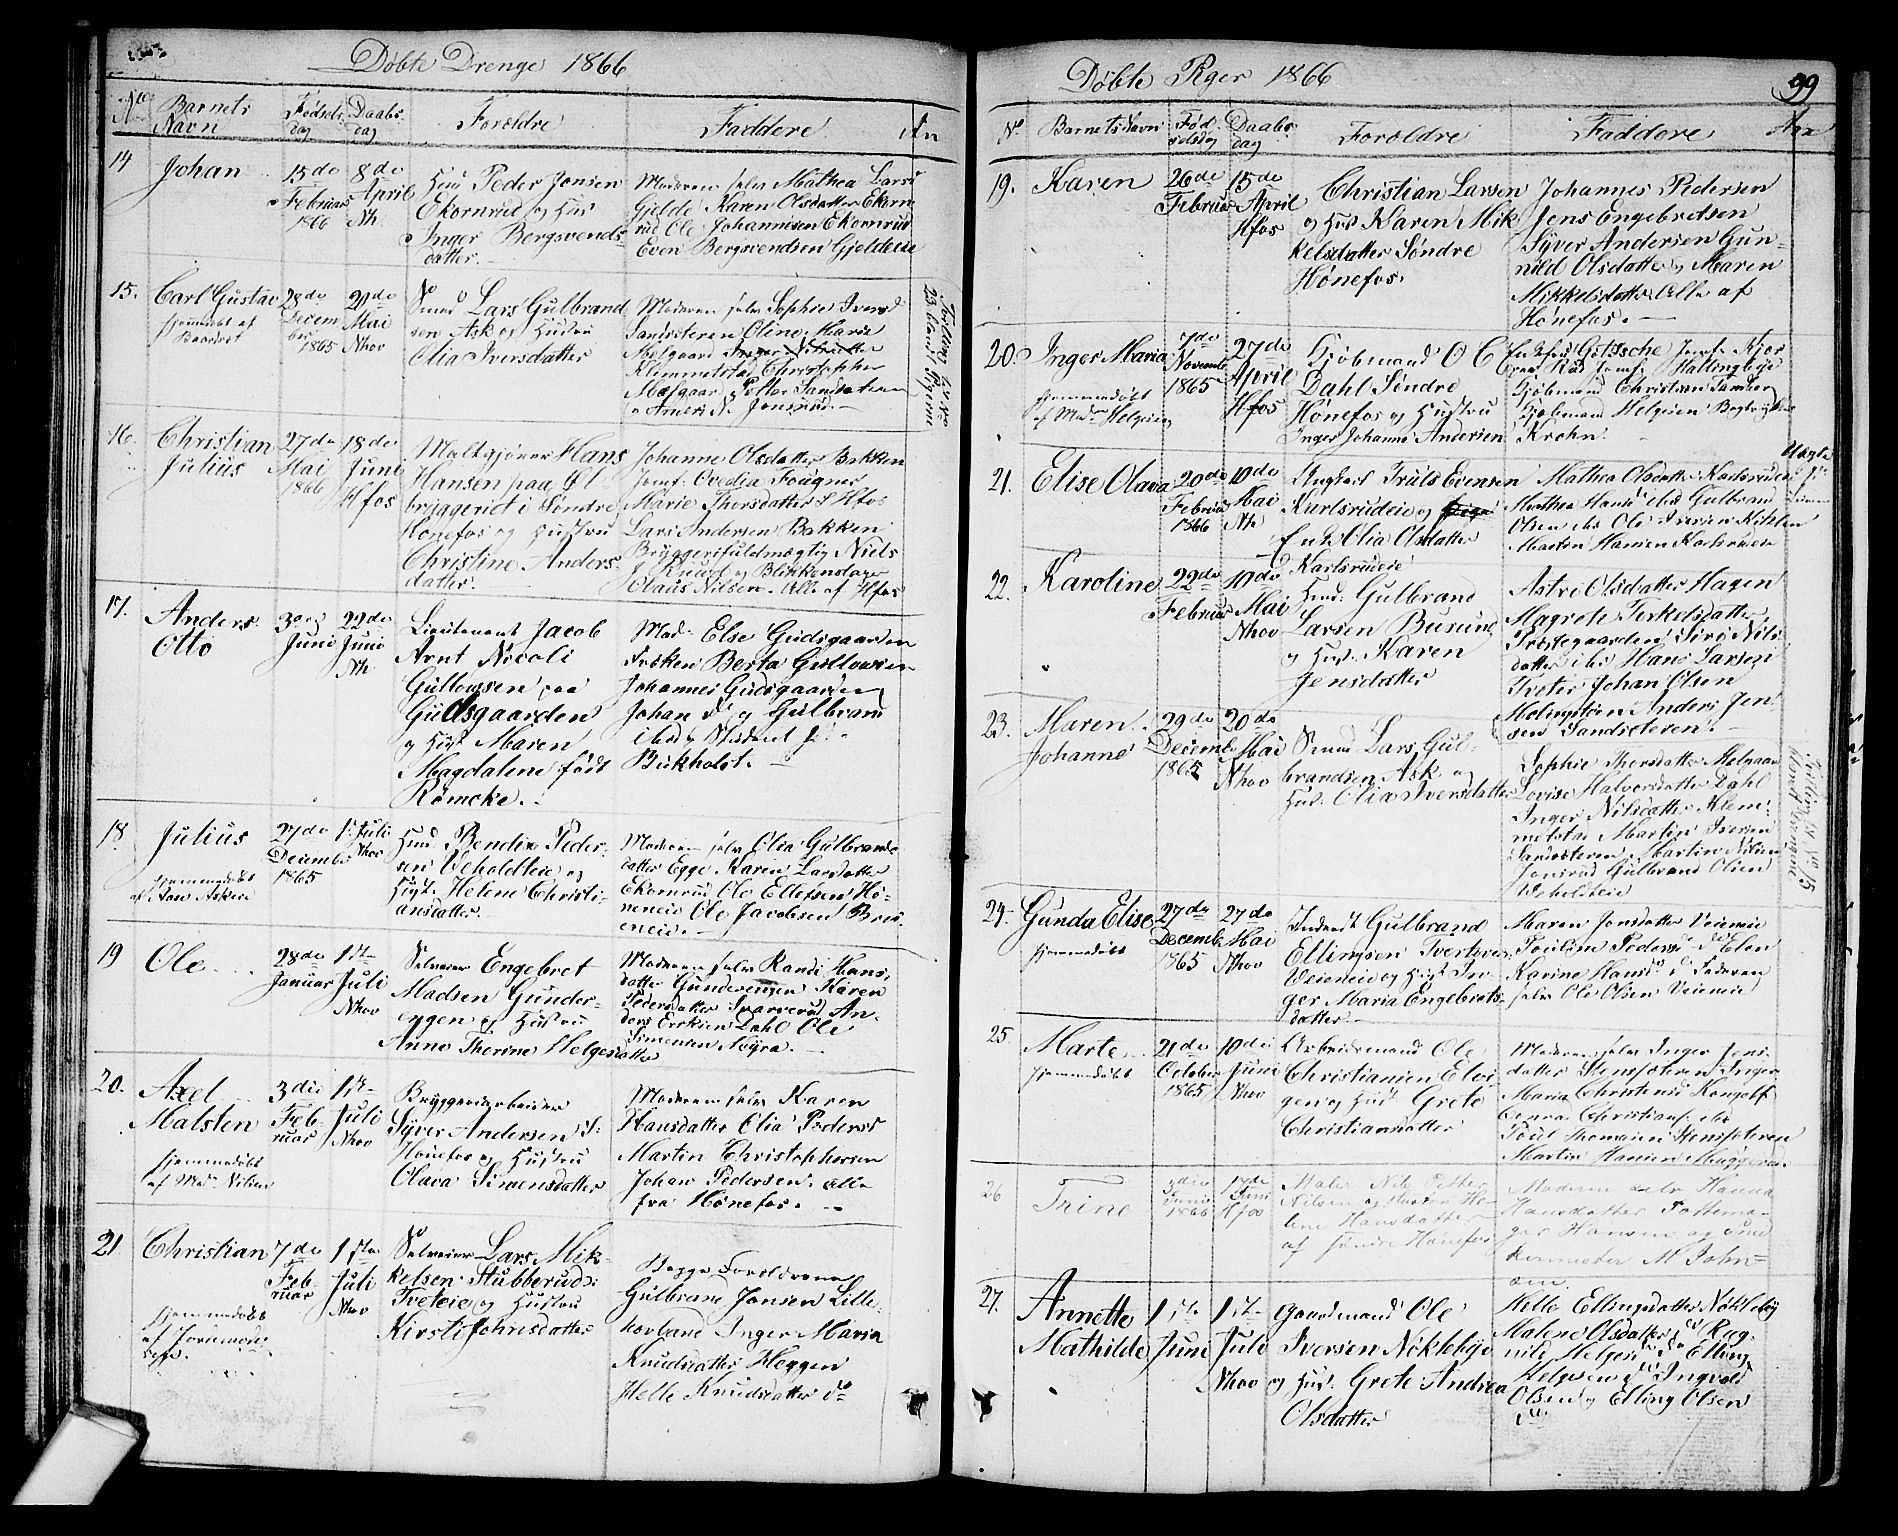 Döbte Drenge 1866
No
Barnets Navn
Fødselsdag
Daabsdag
Forældre
Faddere
An
14
Johan
15de Februar 1866
8de April Nh.
Peder Jonsen
Ekornrud og Hus
Inger Bergsvends
datter.
Moderen selv Mathea Lars
Gjelde Karen Olsdatter Ekorn
rud Ole Johannesen Ekornrud
Even Bergsvendsen Gjeldeie
15.
Carl Gustav
hjemmedøbt af
28de Decem ber 1865
21de Mai Nhov
Lars Gulbrand
sen Ask og Hustru
Olia Iversdatter
Moderen selv Sophie Ivers
Sandsteren Oline Marie
Klemmetsta Christopher
Petter
Anders N. Jonsrud.
Tvilling sv. No 23 blandt Pigerne
16.
Christian
Julius
27de Mai 1866
18de Juni Hfos
Maltgjører Hans
Hansen paa Øl
bryggeriet i Søndre
Hønefos og Hustru
Christine Anders
datter.
Johanne Olsdatter Bakken
Jomf. Ovedia Fougner
Marie Thorsdatter Hfos
Lars Andersen Bakken
Bryggerifuldmægtig Niels
Ruud og Blikkenslager
Olaus Nilsen. Alle af Hfos
17.
Anders
Otto
3die Juni
22de Juni Nh
Lieutenant Jacob
Arnt Nicoli
Gullowsen paa
Gudsgaarden
og Hust. Maren
Magdalene født
Römcke.
Mad. Else Gudsgaarden
Frøken Berta Gullowsen
Johannes Gudsgaarden
Johan do og Gulbrand
ibid og Student
Bukholdt.
18
Julius
hjemmedøbt
af Aase Askeie
27de December 1865
1. Juli Nhov
Husm. Bendix Peder
sen Veholdteie og
Hust. Helene Christi
ansdatter.
Moderen selv Olia Gulbrands
datter Egge Karen Larsdatter
Ekornrud Ole Ellefsen Hö
neneie Ole Jacobsen Brus
eneie.
19
Ole
28de Januar
1ste Juli Nhov
Selveier Engebret
Madsen Gunder
engen og Hustru
Anne Therine Helgesdatter
Moderen selv Randi Hans
datter Gunderengen Karen
Pedersdatter Svarverud An
ders Ericksen Dahl Ole
Simensen Myra.
20.
Axel
Malsten
hjemmedøbt
af Mad. Nilsen
3die Feb ruar
1ste Juli Nhov
Bryggeriarbeider
Syver Andersen S.
Hönefos og Hustru
Olava Simensdatter
Moderen selv Karen
Hansdatter Olia Peders
Martin Christophersen
Johan Pedersen. alle
fra Hönefos.
21
Christian
hjemmedøbt
af Jordemoder
7de Feb ruar
1ste Juli Nhov
Selveier Lars Mik
kelsen Stubberud
Tveteie og Hustru
Kirsti Johnsdatter
Begge Forældrene
Gulbrand Jonsen Lille
Inger Maria
Knudsdatter Heggen
Helle Knudsdatter do
Döbte Piger 1866
99
No
Barnets Navn
Fødselsdag
Daabsdag
Forældre
Faddere
19.
Karen
26de Februar
15de April Hfos
Christian Larsen
og Hust Karen Mik
kelsdatter Søndre
Hønefos.
Johannes Pedersen
Jens Engebretsen
Syver Andersen Gun
nild Olsdatter og Maren
Mikkelsdatter Alle af
Hønefos.
20.
Inger Maria
hjemmedøbt
af Mad. Helgesen
7de Novemb 1865
27de April Hfos
Kjøbmand O C
Dahl Søndre
Hönefos og Hustru
Inger Johanne Andersen
Götsche Jomf. Kjer
Jomf. Hallingbye
Kjøbmand Christian Samber
Kjøbmand Helgesen Bogtrykker
Krohn.
21.
Elise Olava
20de Februar 1866
10de Mai Nh
Ungkarl Truls Evensen
Karlsrudeie og
Enke Olia Olsdatter
Karlsrudeie
Mathea Olsdatter Karlsrudeie
Mathea Hansd ibid Gulbrand
Olsen ibs Ole Iversen Kihlen
Morten Hansen Karlsrudeie
Uægte
22.
Karoline
22de Februar
10de Mai Nhov
Husm. Gulbrand
Larsen Busund
og Hust. Karen
Jensdatter
Astri Olsdatter Hagen
Magrete Terkelsdatter
Præstegaarden Siri Nils
datter ibs Hans Larsen
Tveter Johan Olsen
Anders Jen
sen Sandsteren.
23.
Maren
Johanne
29de Decemb 1865
20de Mai Nhov
Lars Gul
brandsen Ask og
Hus. Olia Iversdatter
Sophie Thorsdatter
Lovise Halvorsdatter Dahl
Inger Nilsdatter Klem
metstad Martin Iversen
Sandsteren Martin Nilsen
Jonsrud Gulbrand Olsen
Veholdteie
Tvilling sv. No 15 blandt Drengene
24.
Gunda Elise
hjemmedøbt
27de Decemb 1865
27de Mai Nhov
Inderst Gulbrand
Ellingsen Tverteve
Veieneie og Hust In
ger Maria Engebrets
datter
Maren Jonsdatter Veieneie
Pouline Pedersd do Elen
Karine Hansd do Faderen
selv Ole Olsen Veieneie
25.
Marte
hjemmedøbt
21de October 1865
10de Juni Nhov
Arbeidsmand Ole
Christiansen Elvi
gen og Hust Grete
Christiansdatter
Moderen selv Inger Jens
datter Stensteren Inger
Maria Christensd
Christians ibs
Poul Thomesen Stensteren
Martin Hansen Muggerud
26
Trine
3die Juni 1866
17de Juni Hfos
Maler Nils Petter
Nilsen og Hustru He
lene Hansdatter
af Søndre Hönefos
Moderen selv Hanna
Hansdatter Pottema
ger Hansen og Snek
kermester M John
sen.
27.
Annette
Mathilde
1ste Juni
1ste Juli Nhov
Gaardmand Ole
Iversen Nökleby
og Hus. Grete Andrea
Olsdatter
Helle Ellingsdatter Nökleby
Malene Olsdatter do Rag
nild Helgesd do Elling
Helgesen do Ingvald
Olsen og Elling Olsen